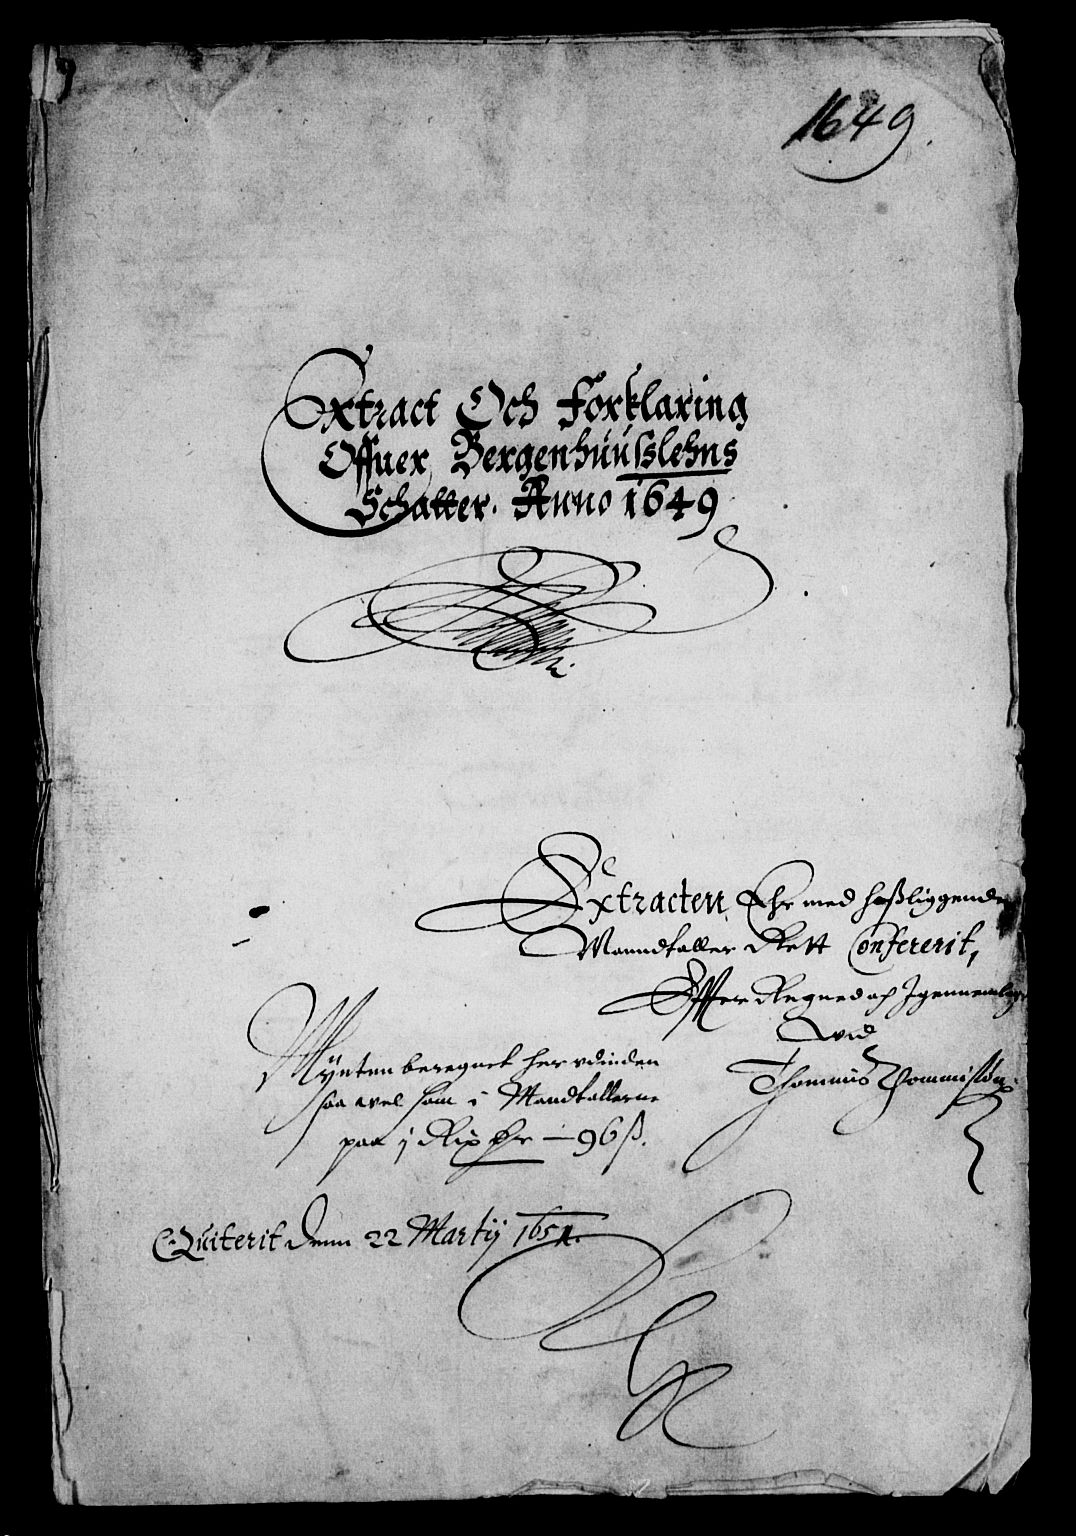 1649.
Extract Och Forklaring
Offuer Bergenhuuslehns
Schatter. Anno 1649
Extracten Ehr med hoßliggende
Manndtaller Rett Confererit,
Effter Regned och Igennemlagt
wid
Thommis Thommisøn
Mÿnten beregnet her udinden
saa wel som i Mandtallerne
paa j Rix dr — 96 ß.
Quiterit Denn 22 Martij